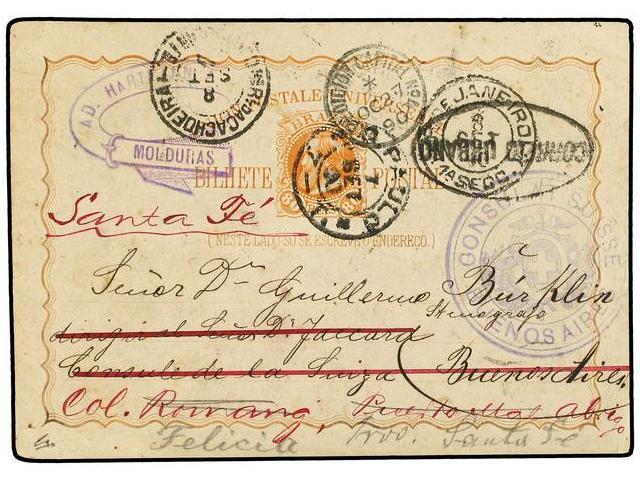 AD. HART
MOLDURAS
CACHOEIRA
8
SET
RIO DE JANEIRO
1ª SECC.
CORREIO URBANO
BILHETE POSTAL
(NESTE LADO SÓ SE ESCREVE O ENDEREÇO.)
CONSULAT SUISSE
BUENOS AIRES
Santa Fé
Señor Dn Guillermo Bürklin
Stenografo
dirigir al Señor Dn Jaccard
Consule de la Suiza Buenos Aires
Col. Romang, Puerto Mal Abrigo
Felicia Prov. Santa Fé